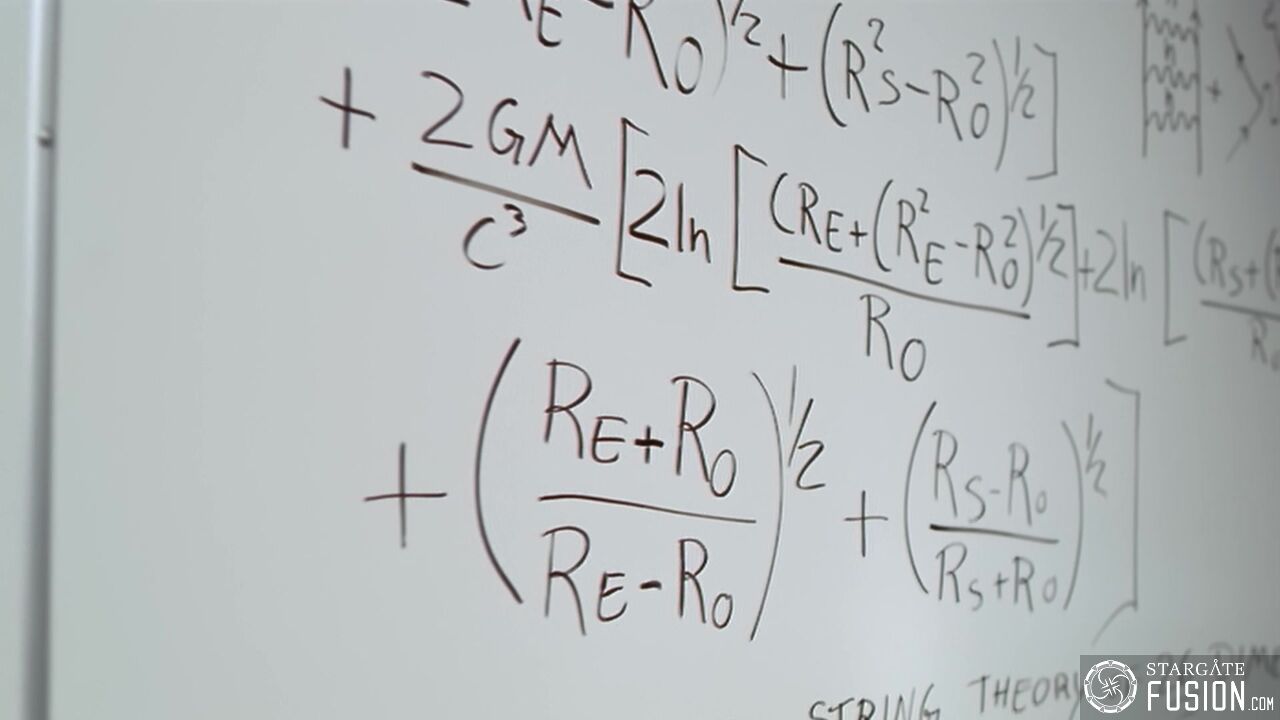 E - R_O)^½ + (R_S^2 - R_O^2)^½]
+ 2GM/C^3 [2ln [(R_E + (R_E^2 - R_O^2)^½/R_O] + 2ln [(R_S + (
+ ((R_E + R_O)/(R_E - R_O))^½ + ((R_S - R_O)/(R_S + R_O))^½]
STRING THEORY
STARGATE
FUSION.COM